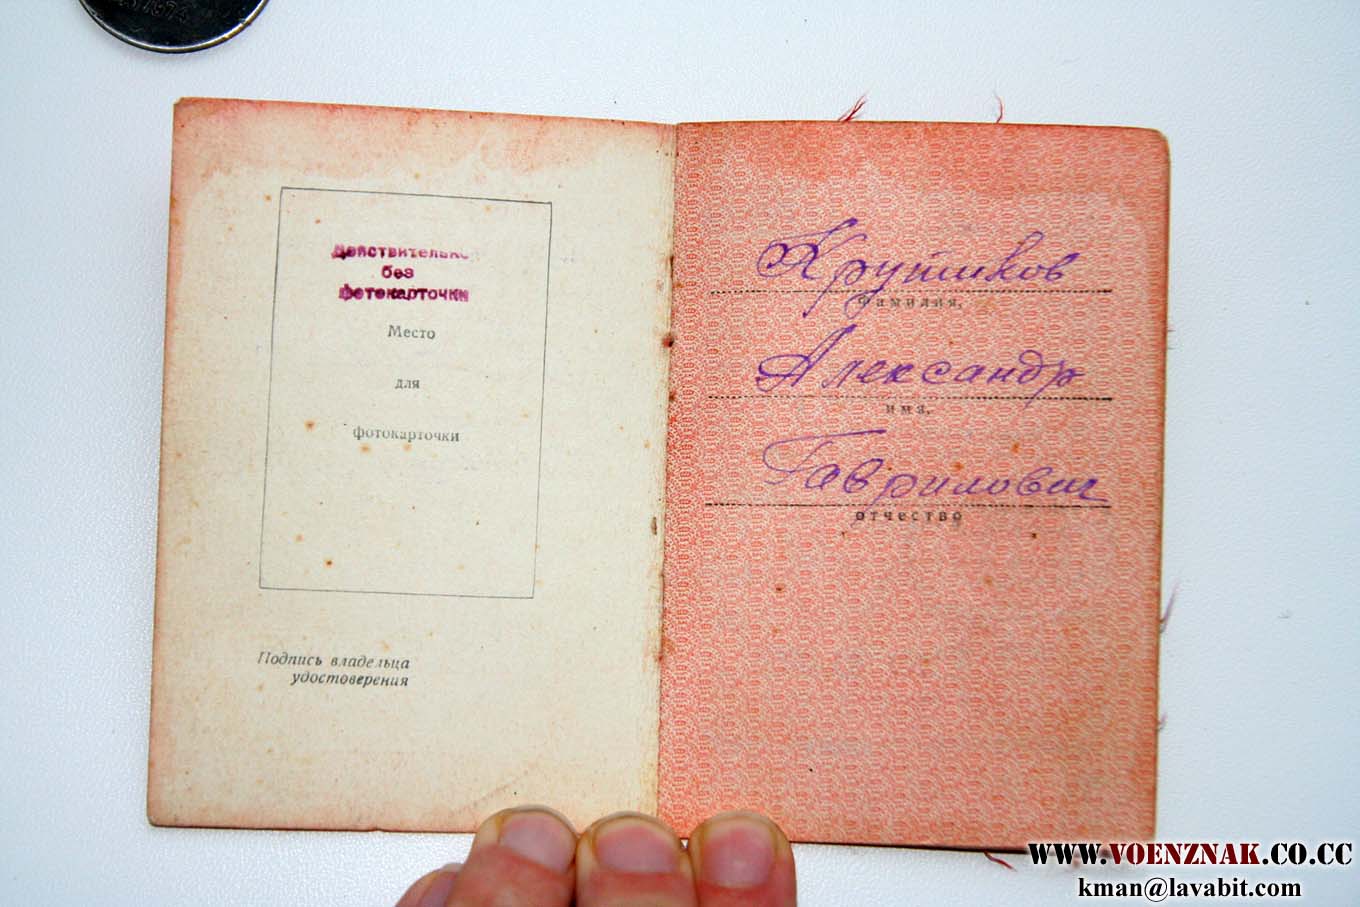 1974
Действительно
без
фотокарточки
Место
для
фотокарточки
Подпись владельца
удостоверения
Крутиков
фамилия,
Александр
имя,
Гаврилович
отчество
WWW.VOENZNAK.CO.CC
kman@lavabit.com